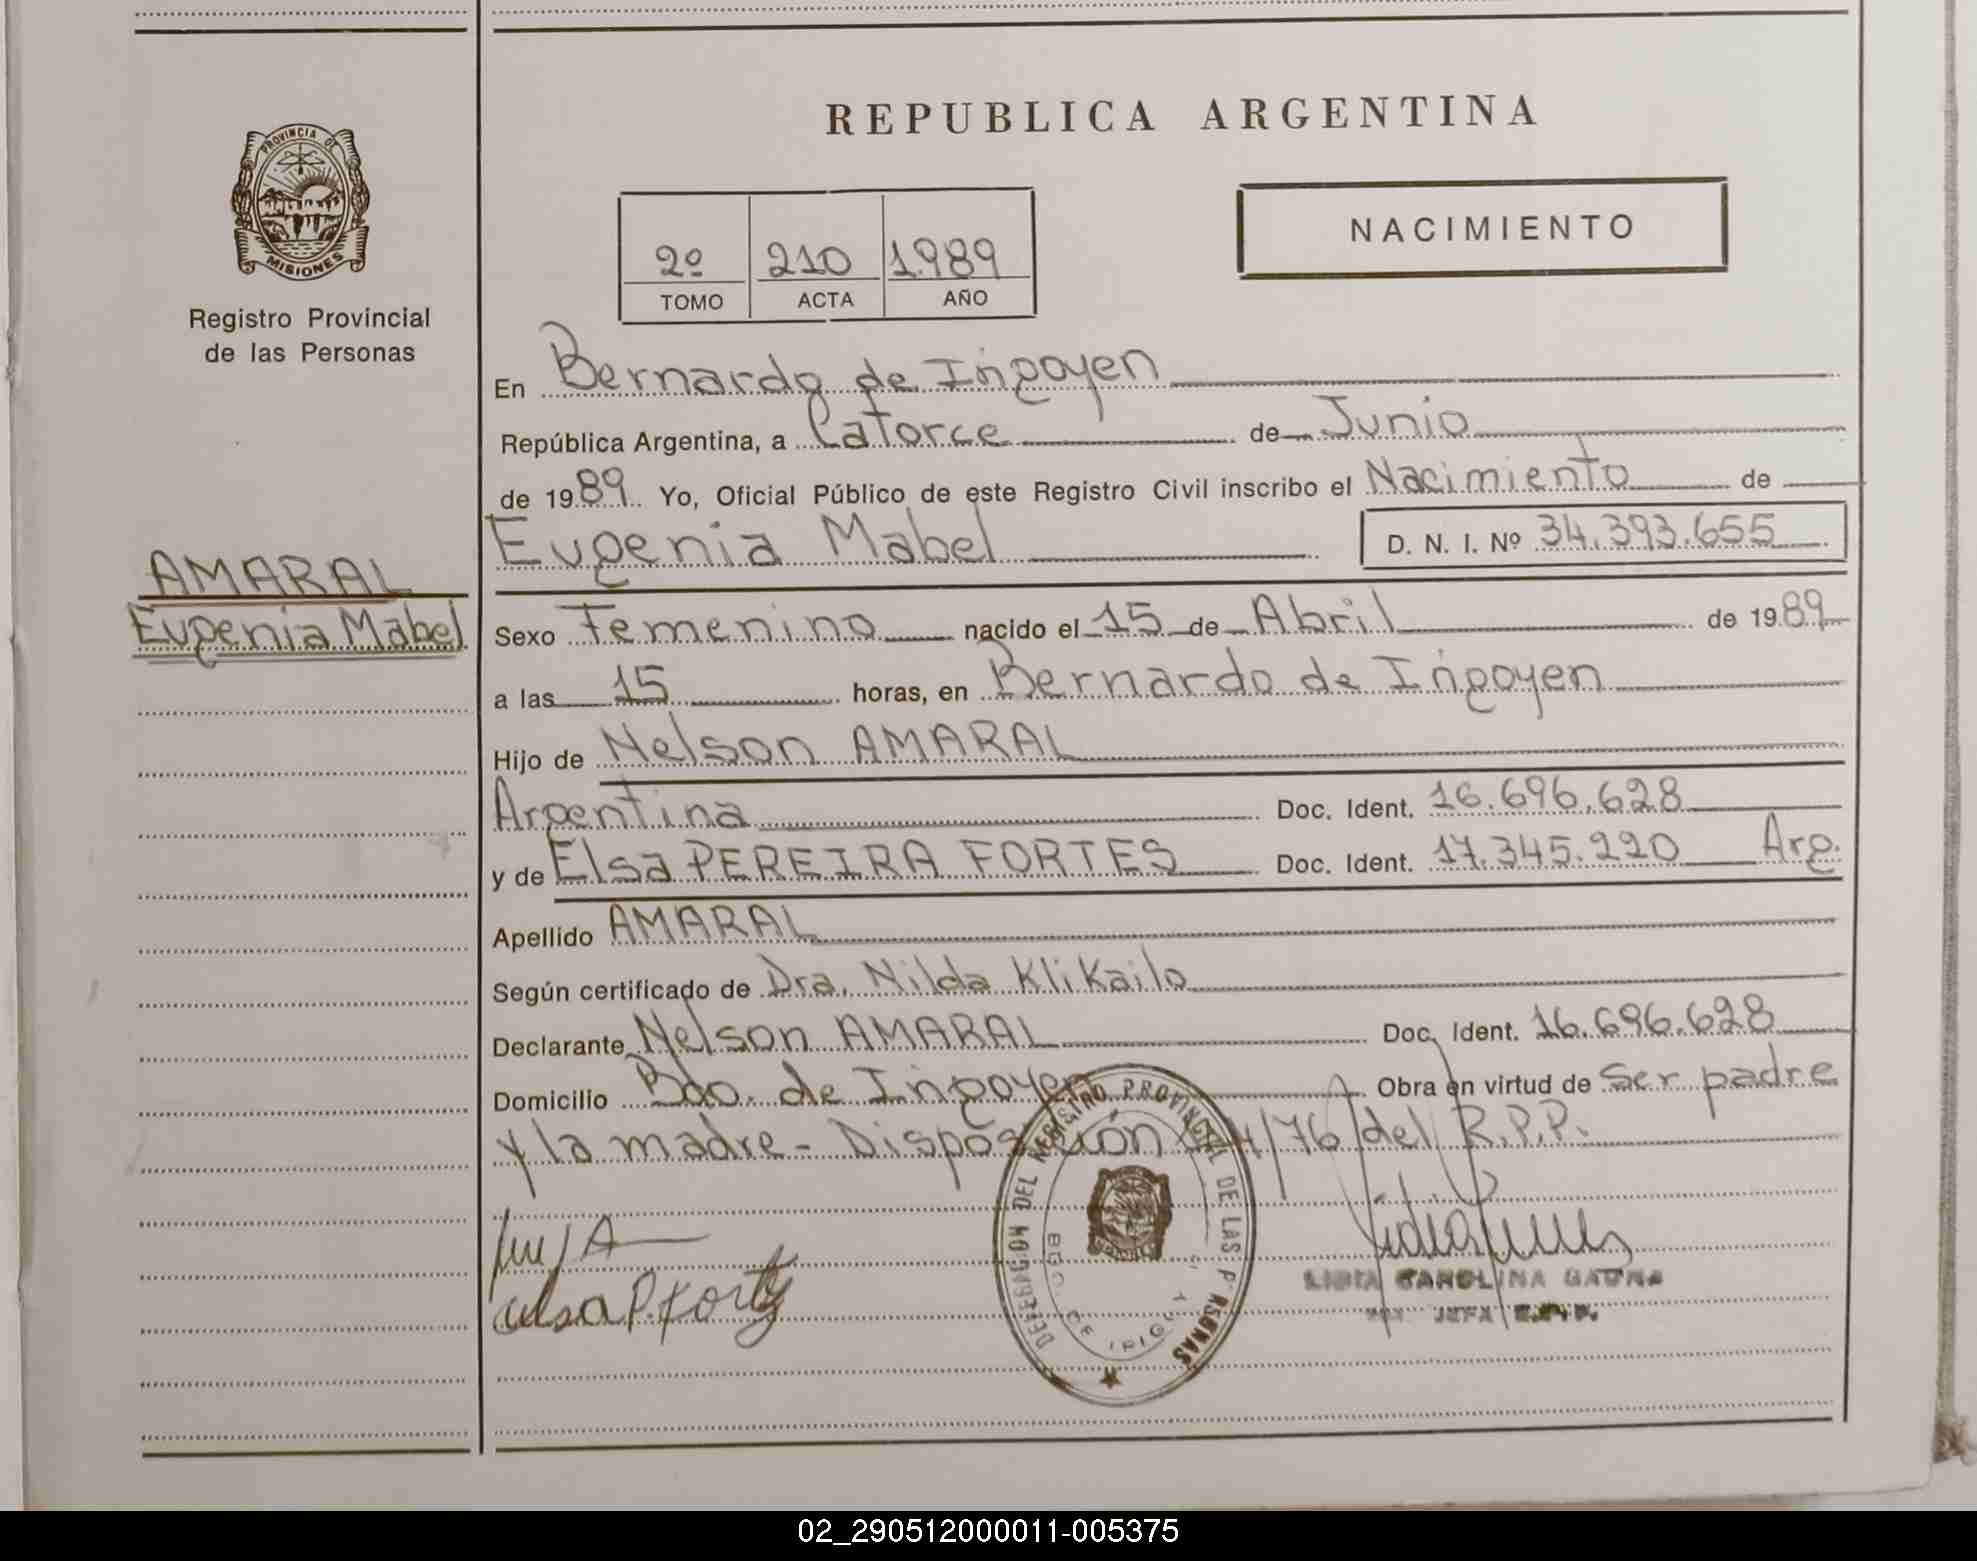 REPUBLICA ARGENTINA
PROVINCIA DE
MISIONES
Registro Provincial
de las Personas
NACIMIENTO
2º 210 1989
TOMO ACTA AÑO
En Bernardo de Irigoyen
República Argentina, a Catorce de Junio
de 1989 Yo, Oficial Público de este Registro Civil inscribo el Nacimiento de
Eugenia Mabel D. N. I. Nº 34.393.655
AMARAL
Eugenia Mabel
Sexo Femenino nacido el 15 de Abril de 1989
a las 15 horas, en Bernardo de Irigoyen
Hijo de Nelson AMARAL
Argentina Doc. Ident. 16.696.628
y de Elsa PEREIRA FORTES Doc. Ident. 17.345.220 Arg.
Apellido AMARAL
Según certificado de Dra. Nilda Klikailo
Declarante Nelson AMARAL Doc. Ident. 16.696.628
Domicilio Bdo. de Irigoyen Obra en virtud de Ser padre
y la madre - Disposición /76 del R.P.P.
Elsa P. Fortes
DELEGACION DEL REGISTRO PROVINCIAL DE LAS PERSONAS
BDO. DE IRIGOYEN
LIDIA CAROLINA GAUNA
JEFA
02_290512000011-005375